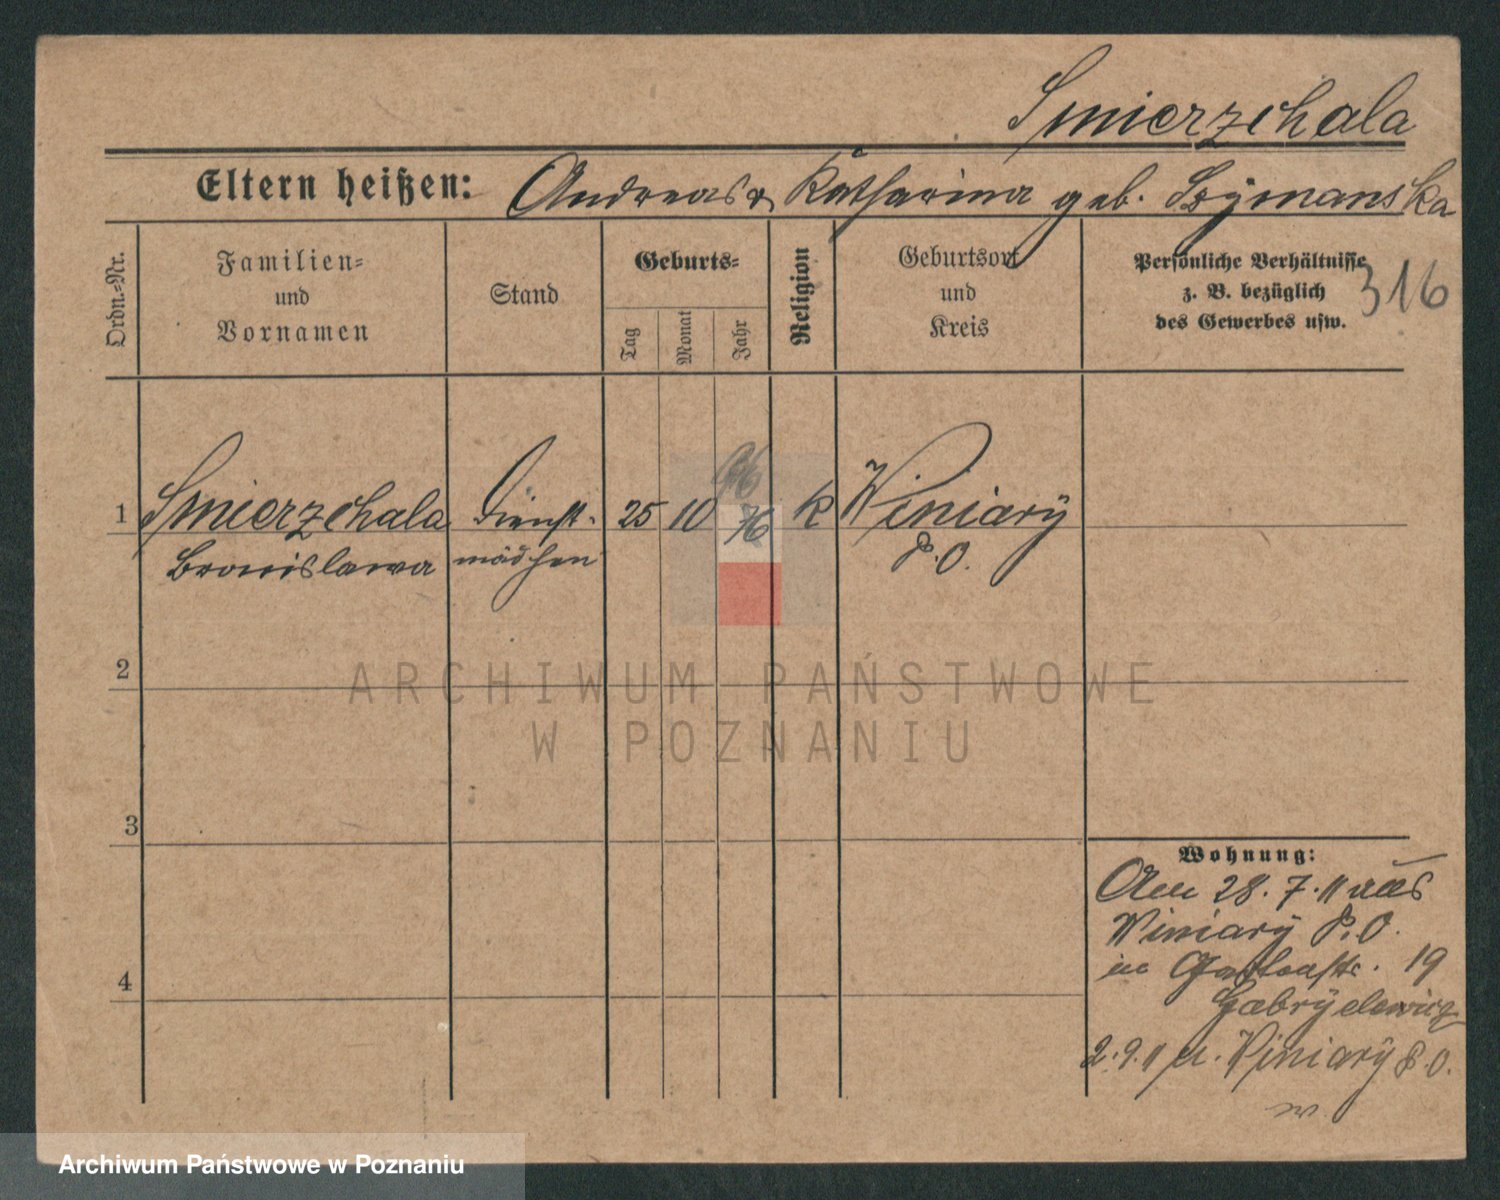 Smierzchala
Eltern heißen: Andreas & Katharina geb. Szymanska
Ordn.-Nr.
Familien- und Vornamen
Stand
Geburts-
Tag
Monat
Jahr
Religion
Geburtsort und Kreis
Persönliche Verhältnisse
z. B. bezüglich
des Gewerbes usw.
316
96
1 Smierzchala Dienst- 25 10 76 k Winiary
Bronislawa mädchen P.O.
2
ARCHIWUM PAŃSTWOWE
W POZNANIU
3
Wohnung:
Am 28.7.11 aus
Winiary P.O.
in Gartenstr. 19
Gabryelewicz
4
2.9.11 n. Winiary P.O.
Archiwum Państwowe w Poznaniu